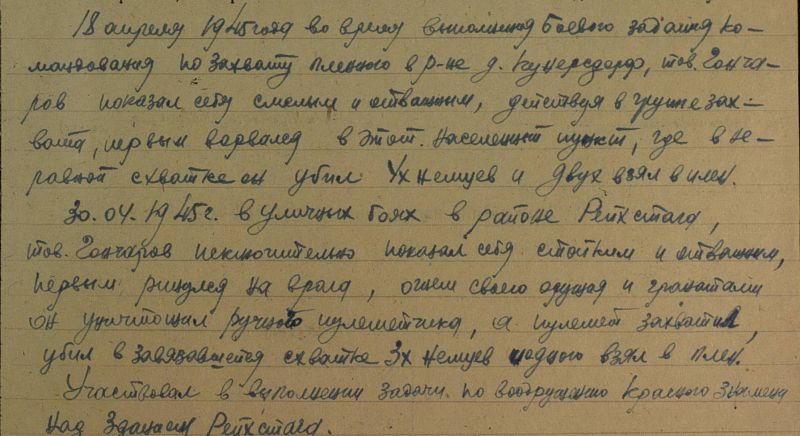 18 апреля 1945 года во время выполнения боевого задания ко-
мандования по захвату пленного в р-не д. Кунерсдорф, тов. Гонча-
ров показал себя смелым и отважным, действуя в группе зах-
вата, первым ворвался в этот населенный пункт, где в не-
равной схватке он убил 4х немцев и двух взял в плен.
30.04.1945г. в уличных боях в районе Рейхстага,
тов. Гончаров исключительно показал себя стойким и отважным,
первым ринулся на врага, огнем своего оружия и гранатами
он уничтожил ручного пулеметчика, а пулемет захватил,
убил в завязавшейся схватке 3х немцев и одного взял в плен.
Участвовал в выполнении задачи по вооружению Красного Знамени
над зданием Рейхстага.